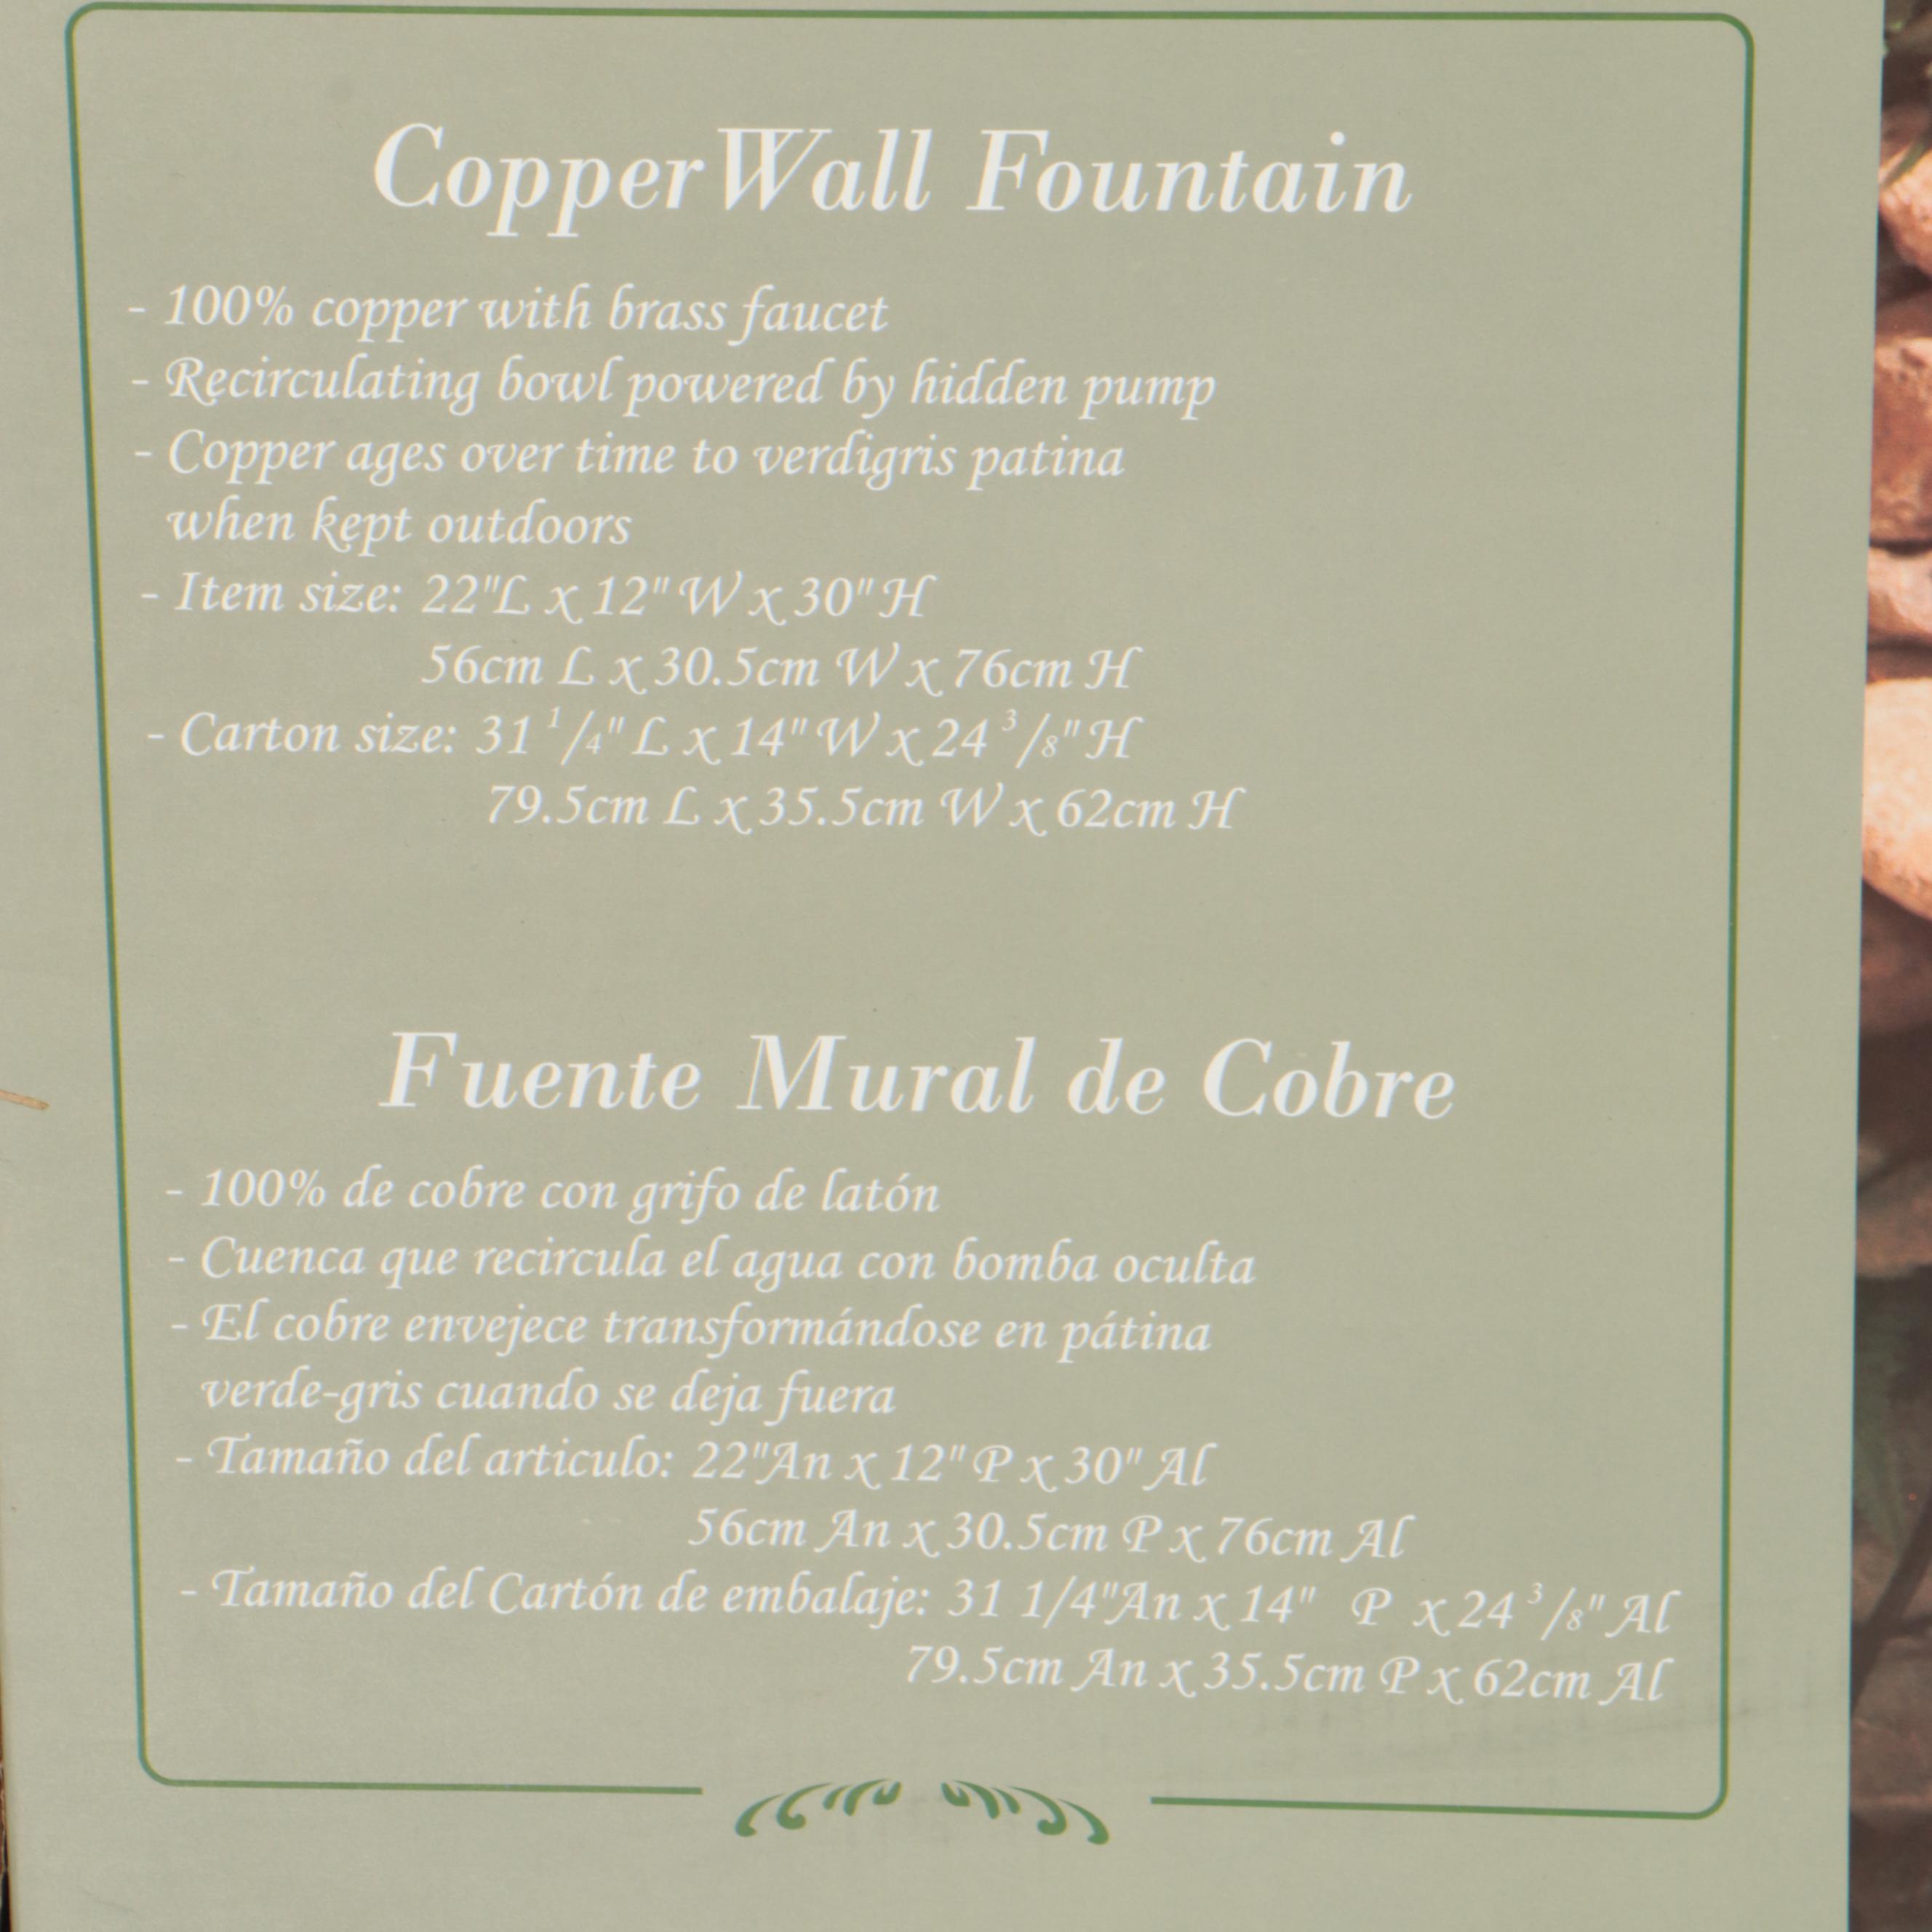 Copper Wall Fountain
- 100% copper with brass faucet
- Recirculating bowl powered by hidden pump
- Copper ages over time to verdigris patina
when kept outdoors
- Item size: 22"L x 12" W x 30" H
56cm L x 30.5cm W x 76cm H
- Carton size: 31 1/4" L x 14" W x 24 3/8" H
79.5cm L x 35.5cm W x 62cm H
Fuente Mural de Cobre
- 100% de cobre con grifo de latón
- Cuenca que recircula el agua con bomba oculta
- El cobre envejece transformándose en pátina
verde-gris cuando se deja fuera
- Tamaño del articulo: 22"An x 12" P x 30" Al
56cm An x 30.5cm P x 76cm Al
- Tamaño del Cartón de embalaje: 31 1/4"An x 14" P x 24 3/8" Al
79.5cm An x 35.5cm P x 62cm Al